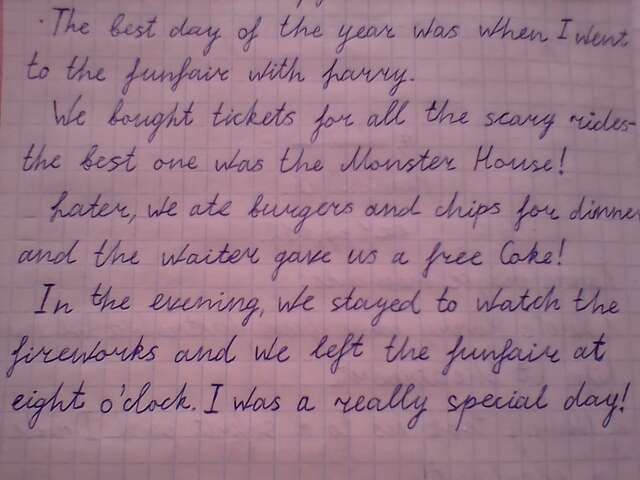 The best day of the year was when I went
to the funfair with Larry.
We bought tickets for all the scary rides-
the best one was the Monster House!
Later, we ate burgers and chips for dinner
and the waiter gave us a free Coke!
In the evening, we stayed to watch the
fireworks and we left the funfair at
eight o'clock. I was a really special day!